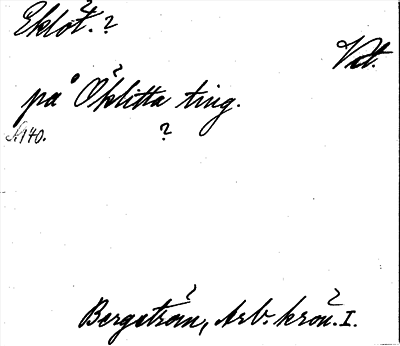 Eklöt. ?
Vtl.
på Öklitta ting.
N 140. ?
Bergström, Arb. krön. I.